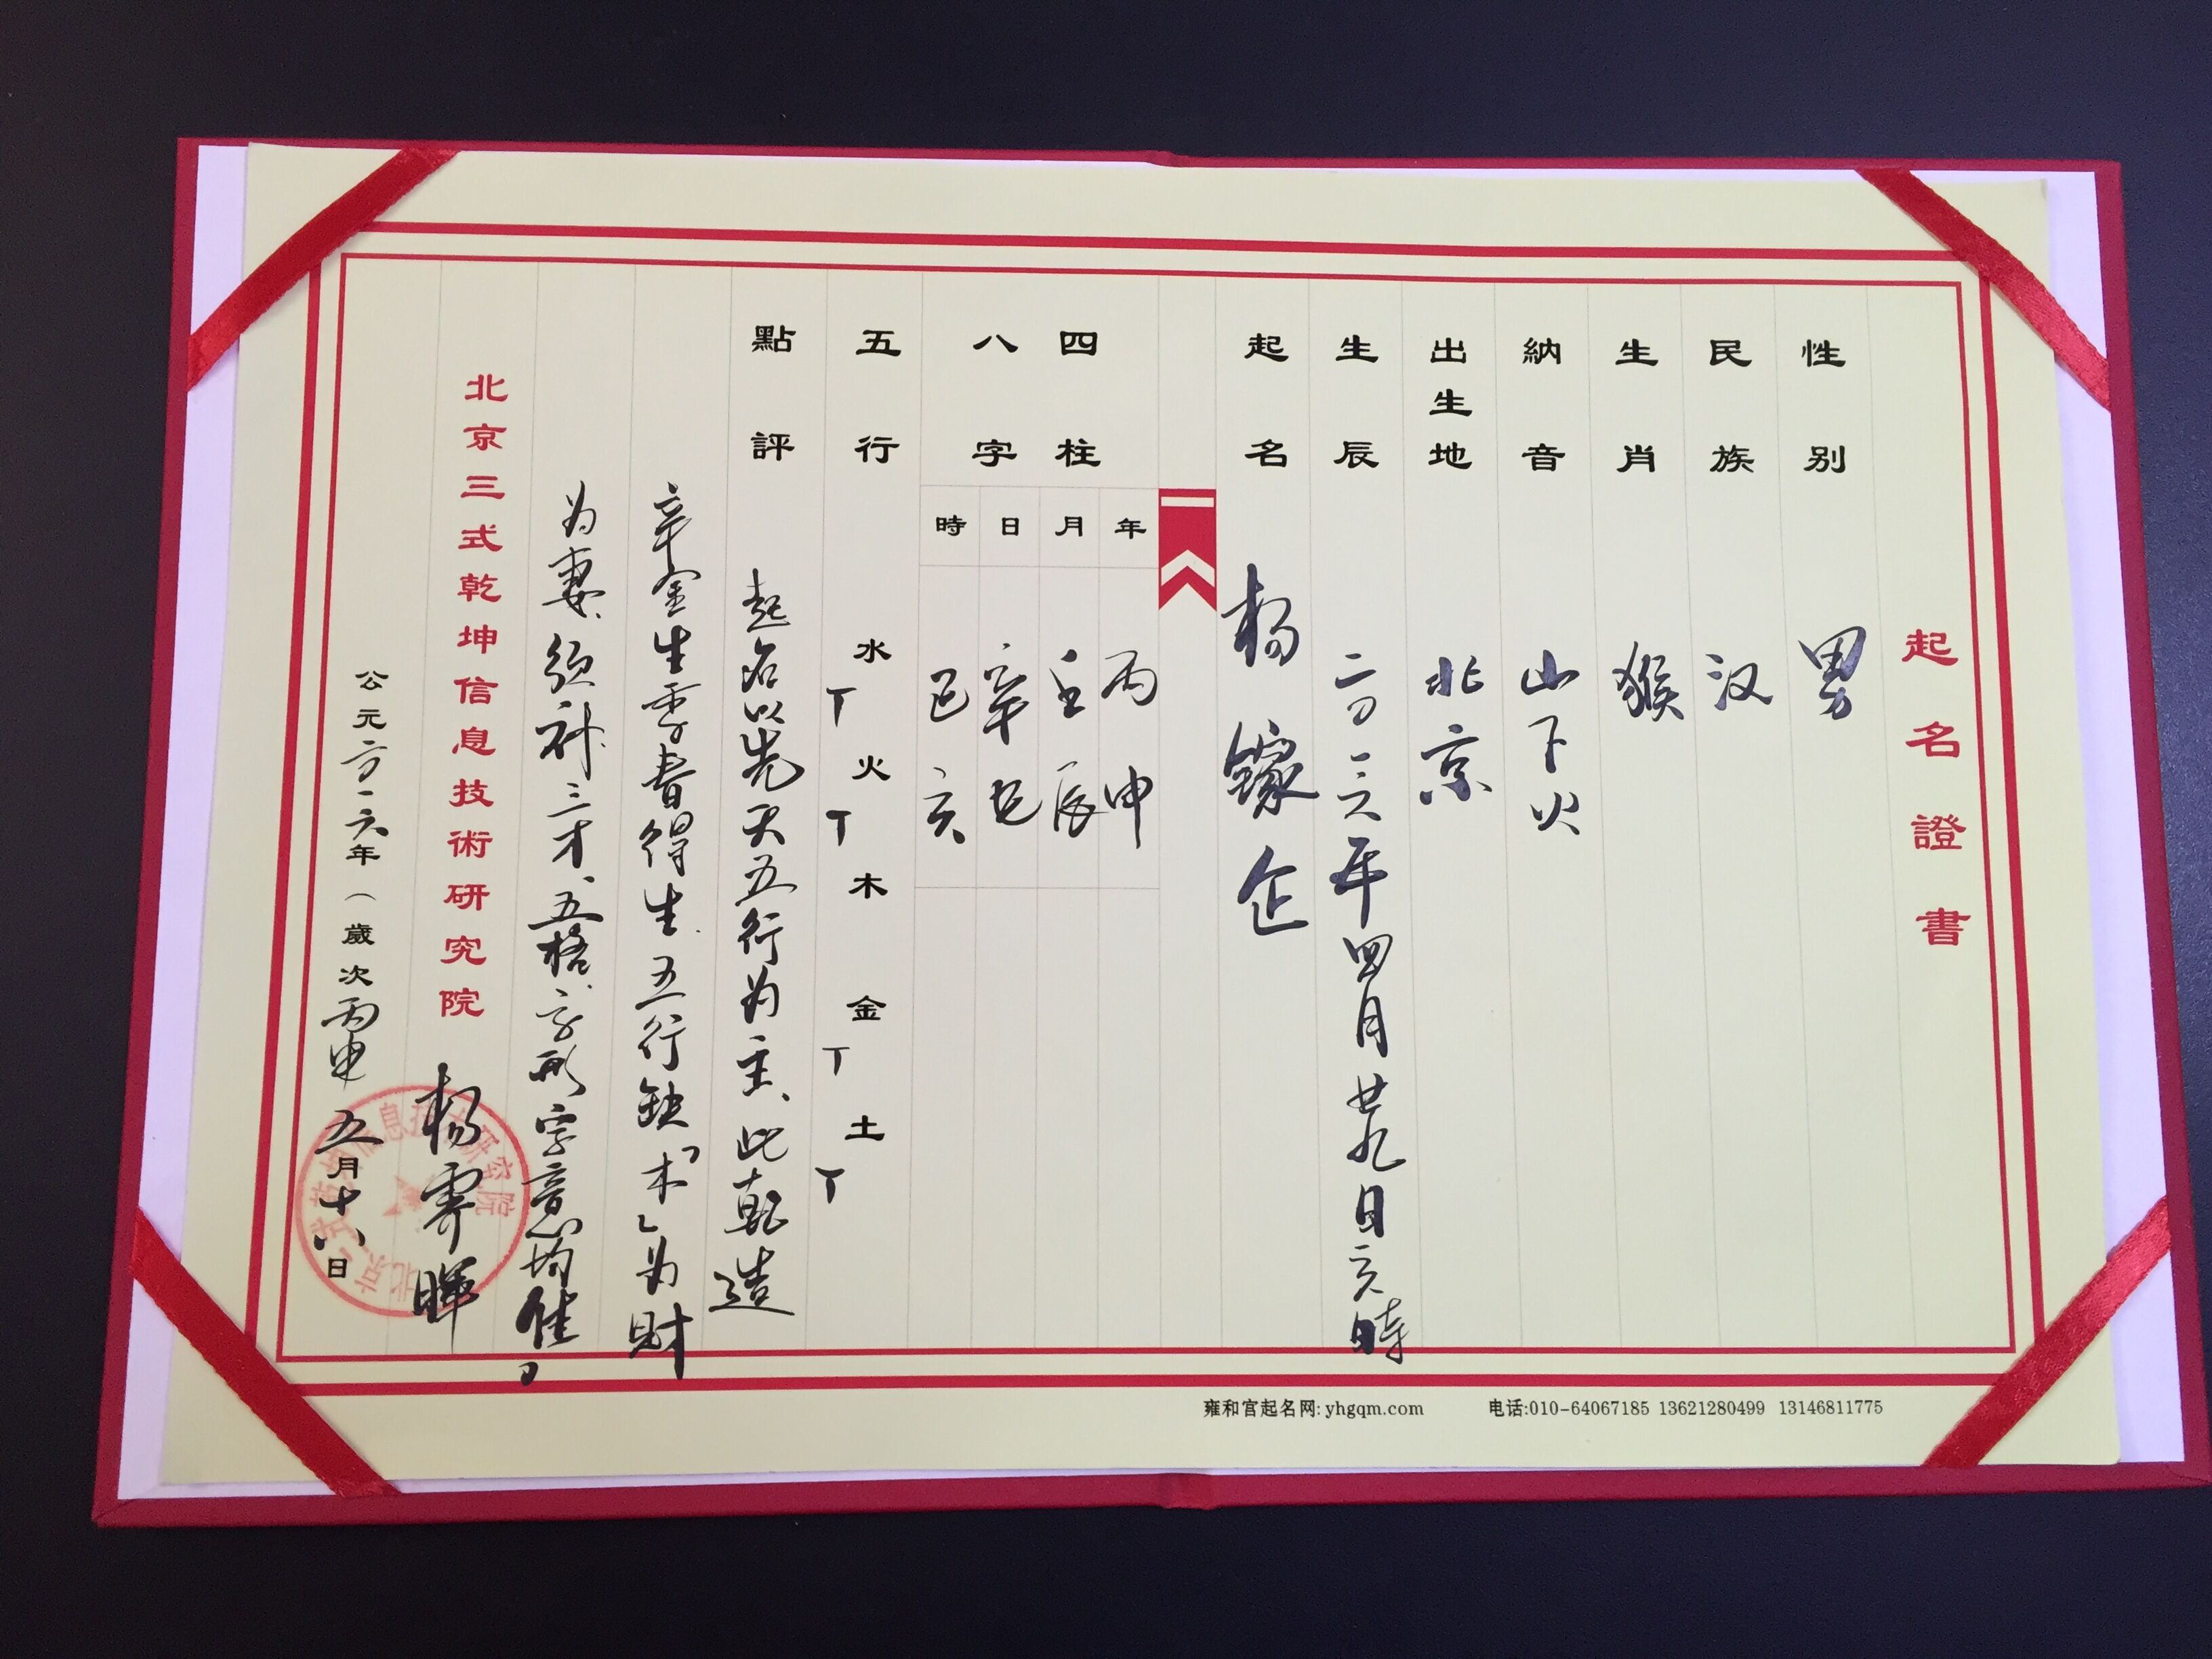 起名證書
性别 男
民族 汉
生肖 猴
納音 山下火
出生地 北京
生辰 二〇一六年四月廿九日亥時
起名 杨鎵企
四柱
八字
年 丙申
月 壬辰
日 辛巳
時 己亥
五行 水 火 木 金 土
點評 起名以先天五行为主、此乾造
辛金生季春得生.五行缺“木”为财
为妻、须补.三才、五格、字形字音意均佳。
北京三式乾坤信息技術研究院 杨霁暉
公元二〇一六年（歲次丙申 五月十八日
雍和宫起名网: yhgqm.com 电话:010-64067185 13621280499 13146811775